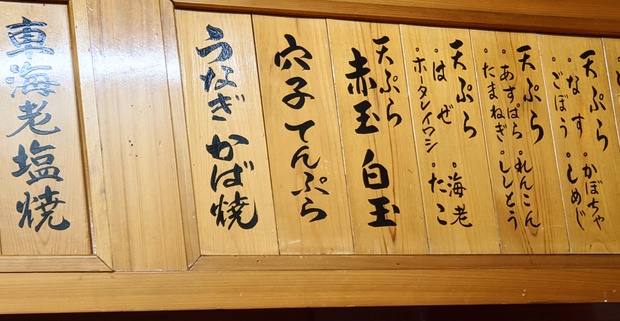 天ぷら
・なす
・ごぼう
・かぼちゃ
・しめじ
天ぷら
・あすぱら
・たまねぎ
・れんこん
・ししとう
天ぷら
・はぜ
・ホータレイワシ
・海老
・たこ
天ぷら
赤玉 白玉
穴子てんぷら
うなぎかば焼
車海老塩焼